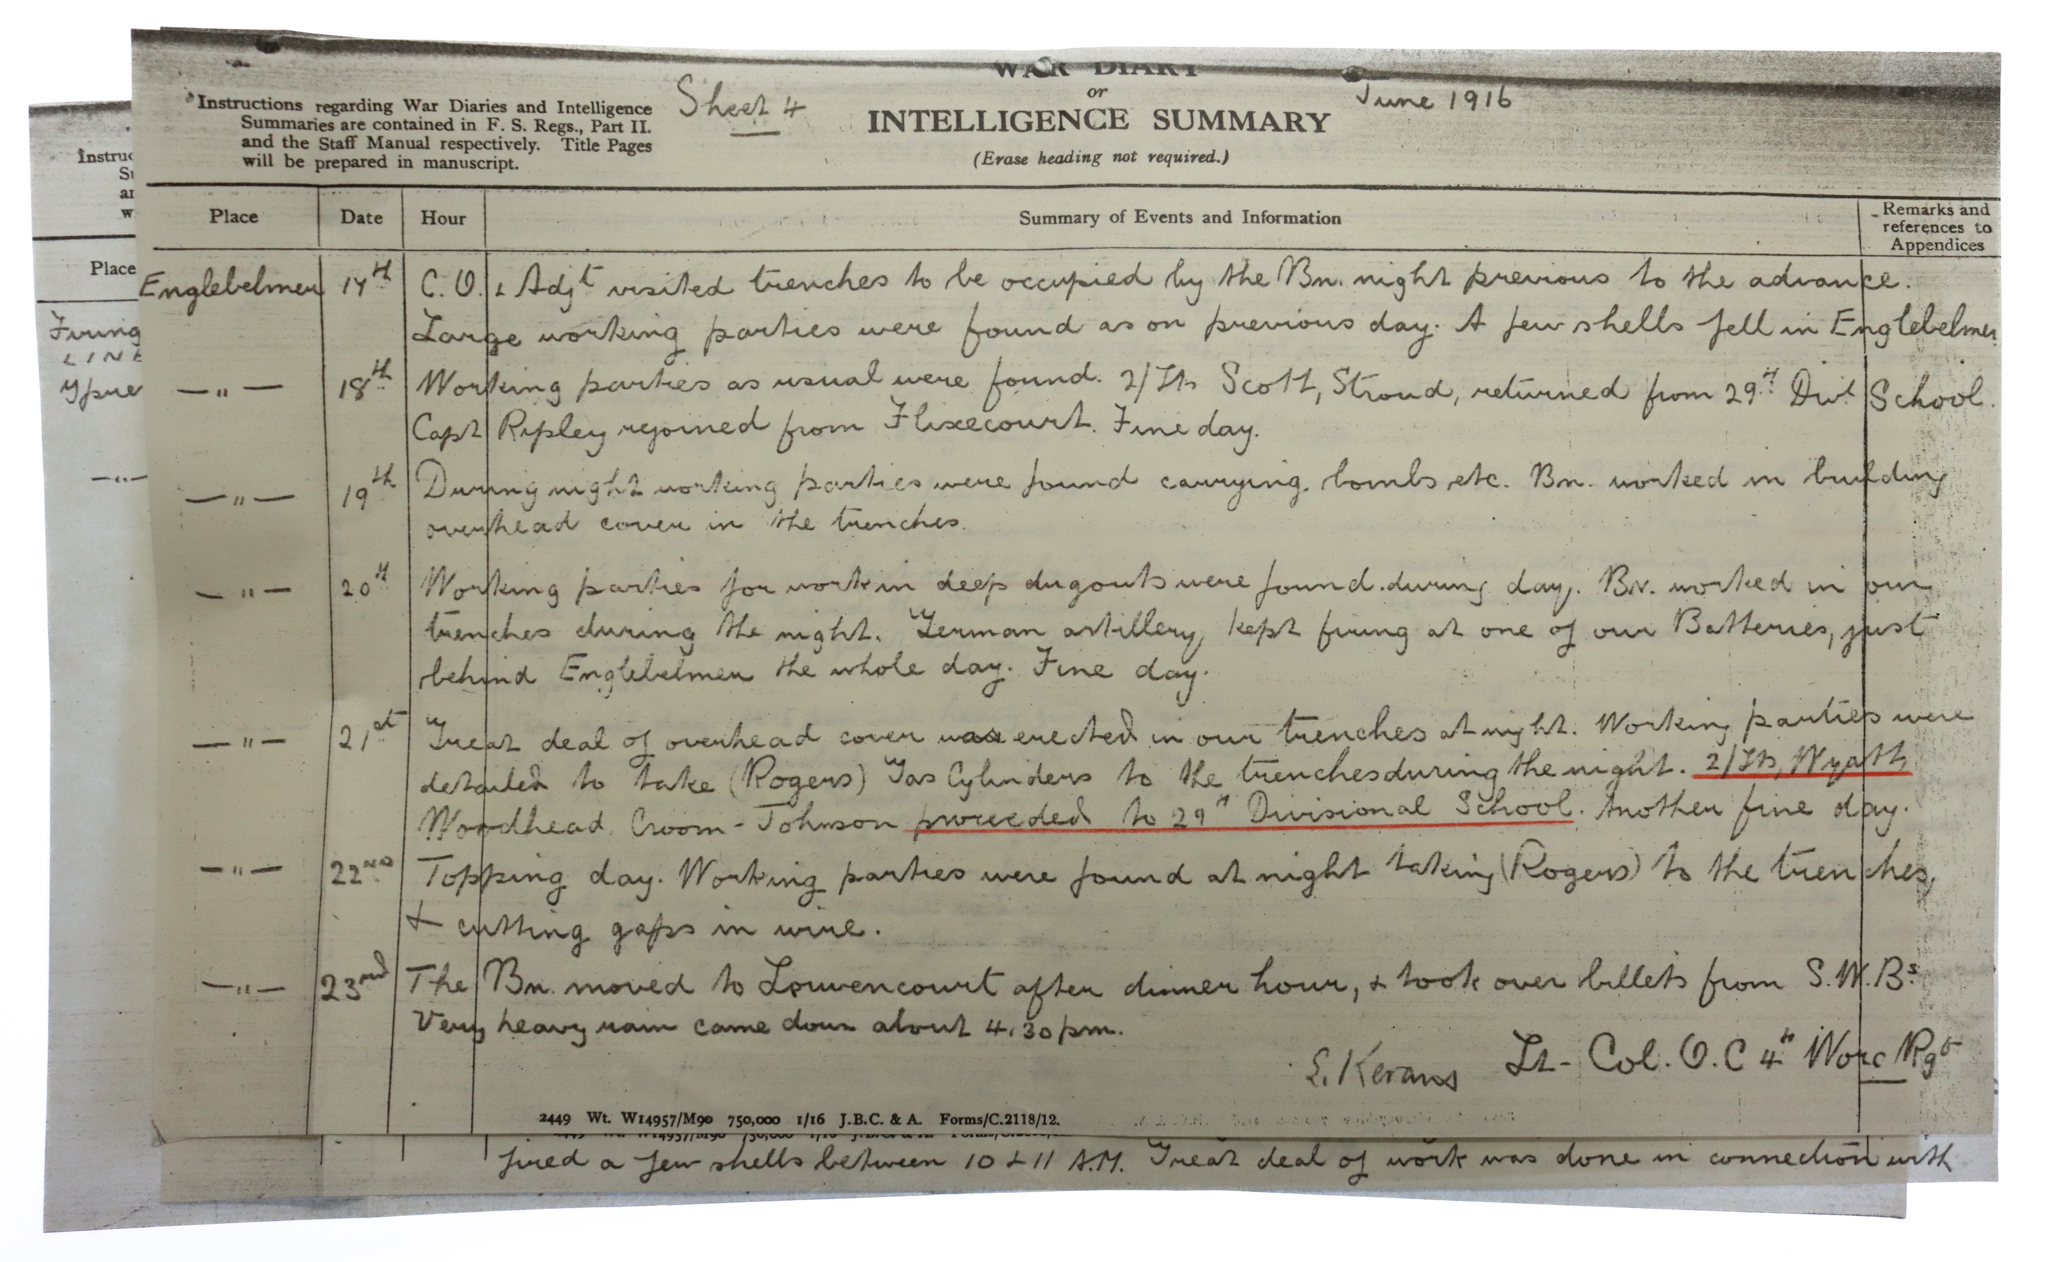 WAR DIARY
or
INTELLIGENCE SUMMARY
(Erase heading not required.)
Instructions regarding War Diaries and Intelligence
Summaries are contained in F. S. Regs., Part II.
and the Staff Manual respectively. Title Pages
will be prepared in manuscript.
Sheet 4
June 1916
Place Date Hour Summary of Events and Information Remarks and
references to
Appendices
Englebelmer 17th C.O. & Adjt visited trenches to be occupied by the Bn. night previous to the advance.
Large working parties were found as on previous day. A few shells fell in Englebelmer
—"— 18th Working parties as usual were found. 2/Lts Scott, Stroud, returned from 29th Divl School.
Capt Ripley rejoined from Flixecourt. Fine day.
—"— 19th During night working parties were found carrying bombs etc. Bn. worked in building
overhead cover in the trenches.
—"— 20th Working parties for work in deep dugouts were found during day. Bn. worked in our
trenches during the night. German artillery kept firing at one of our Batteries, just
behind Englebelmer the whole day. Fine day.
—"— 21st Great deal of overhead cover was erected in our trenches at night. Working parties were
detailed to take (Rogers) Gas Cylinders to the trenches during the night. 2/Lts, Wyatt,
Woodhead, Croom-Johnson proceeded to 29th Divisional School. Another fine day.
—"— 22nd Topping day. Working parties were found at night taking (Rogers) to the trenches,
& cutting gaps in wire.
—"— 23rd The Bn. moved to Louvencourt after dinner hour, & took over billets from S.W.Bs.
Very heavy rain came down about 4.30 pm.
E. Kerans Lt-Col. O.C 4th Worc Rgt
2449 Wt. W14957/M90 750,000 1/16 J.B.C. & A. Forms/C.2118/12.
fired a few shells between 10 & 11 A.M. Great deal of work was done in connection with
Instruc
Su
an
w
Place
Firing
LINE
Ypre
—"—